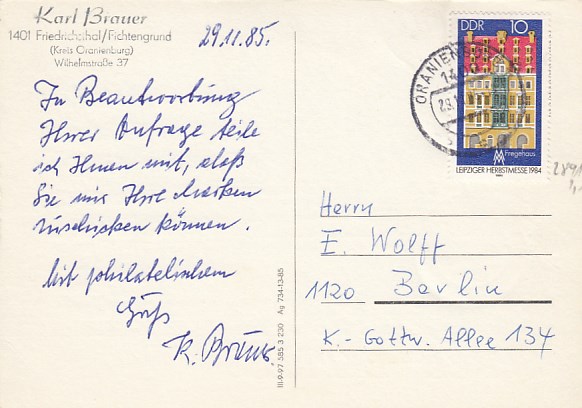 Karl Brauer
1401 Friedrichsthal/Fichtengrund
(Kreis Oranienburg)
Wilhelmstraße 37
29.11.85.
In Beantwortung
Ihrer Anfrage teile
ich Ihnen mit, daß
Sie mir Ihre Marken
zuschicken können.
Mit philatelischem
Gruß
K. Brauer
III-9-97 585 3 230 Ag 734-13-85
DDR 10
ORANIENBURG
Fregehaus
MM
LEIPZIGER HERBSTMESSE 1984
Herrn
E. Wolff
1120 Berlin
K.-Gottw. Allee 134